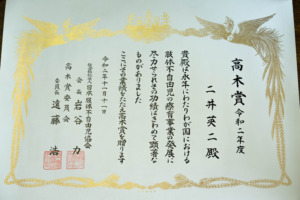 高木賞 令和二年度
二井英二殿
貴殿は永年にわたりわが国における
肢体不自由児の療育事業の発展に
尽力せられその功績はきわめて顕著な
ものがありました
ここにその業績をたたえ高木賞を贈ります
令和二年十一月十一日
社会福祉法人 日本肢体不自由児協会
会長 岩谷 力
高木賞委員会
委員長 遠藤 浩